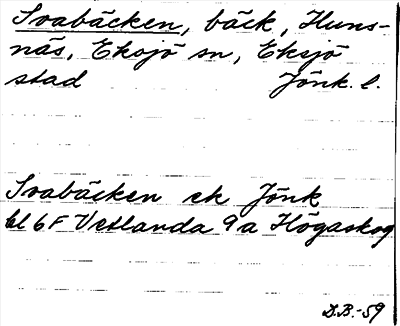 Svabäcken, bäck, Huns-
näs, Eksjö sn, Eksjö
stad Jönk. l.
Svabäcken ek Jönk
bl 6F Vetlanda 9a Högaskog
D.B.-59